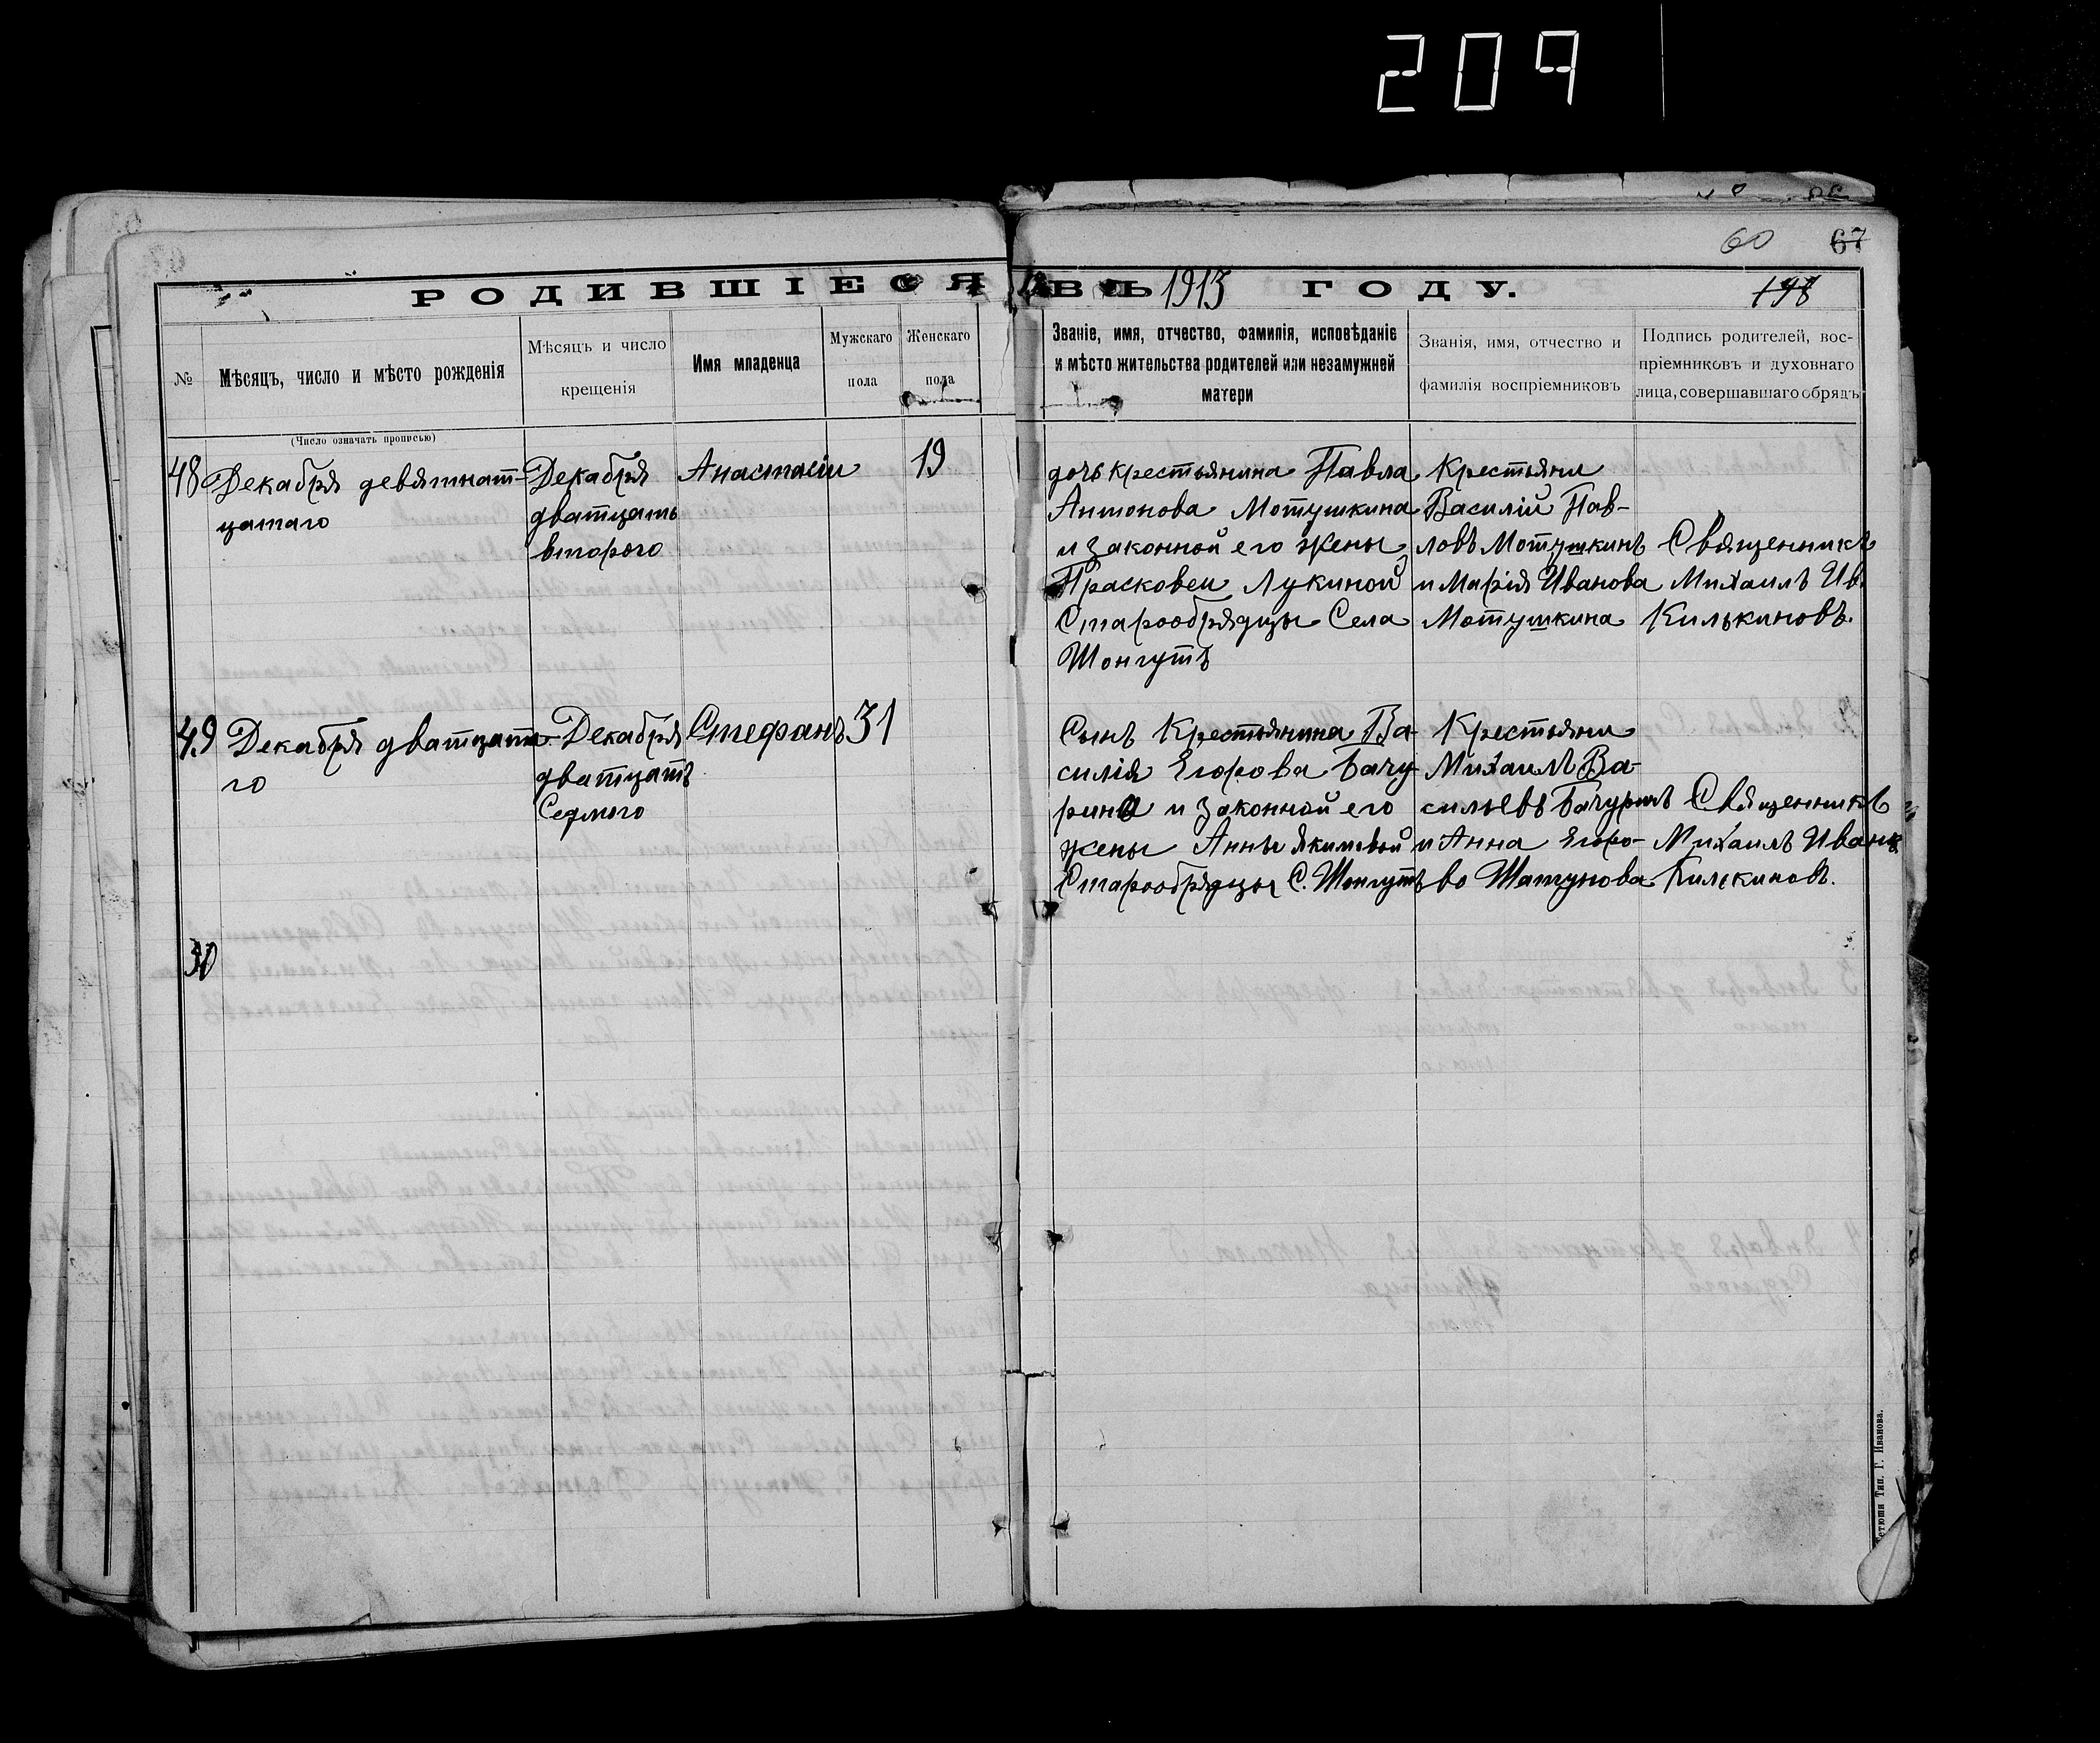 209
60 67
РОДИВШІЕСЯ ВЪ 1913 ГОДУ.
198
№
Мѣсяцъ, число и мѣсто рожденія
Мѣсяцъ и число
крещенія
Имя младенца
Мужскаго
пола
Женскаго
пола
Званіе, имя, отчество, фамилія, исповѣданіе
и мѣсто жительства родителей или незамужней
матери
Званія, имя, отчество и
фамилія воспріемниковъ
Подпись родителей, вос-
пріемниковъ и духовнаго
лица, совершавшаго обрядъ
(Число означать прописью)
48
Декабря девятнат-
цатаго
Декабря
дватцать
второго
Анастасіи
19
дочь крестьянина Павла
Антонова Мотушкина
и законной его жены
Прасковеи Лукиной
Старообрядцы Села
Шонгутъ
Крестьяни
Василій Пав-
ловъ Мотушкинъ
и Марія Иванова
Мотушкина
Священникъ
Михаилъ Ив.
Килькиновъ.
49
Декабря дватцата-
го
Декабря
дватцать
Седмого
Стефанъ
31
Сынъ Крестьянина Ва-
силія Егорова Бачу-
рина и законной его
жены Анны Якимовой
Старообрядцы С. Шонгутъ
Крестьяни
Михаилъ Ва-
сильевъ Бачуринъ
и Анна Егоро-
во Шатунова
Священникъ
Михаилъ Иванъ
Килькиновъ.
50
Тетюши Тип. Г. Иванова.